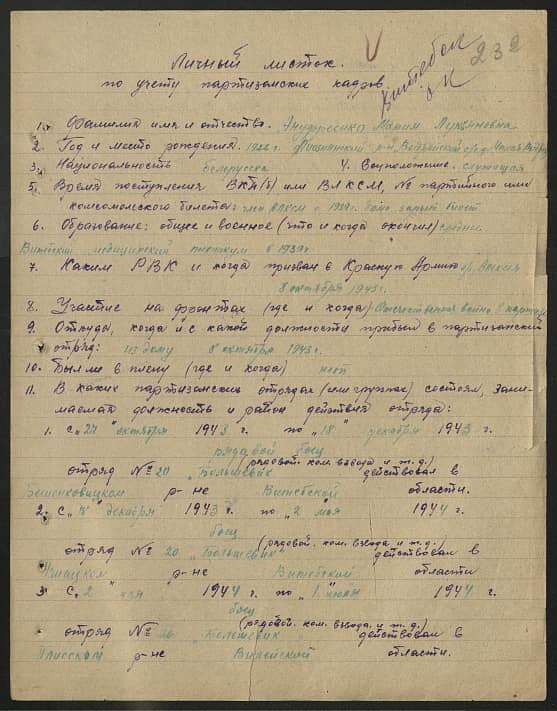 Личный листок.
по учету партизанских кадров
Витебск
232
1. Фамилия имя и отчество. Лукьяновна
2. Год и место рождения. 192
3. Национальность белорусска 4. Соцположение. служащая
5. Время поступления ВКП(б) или ВЛКСМ, № партийного или
комсомольского билета: член ВЛКСМ с 1939г.
6. Образование: общее и военное (что и когда окончил) средн.
Витебский медицинский техникум в 1939г
7. Каким РВК и когда призван в Красную Армию
8 октября 1943г.
8. Участие на фронтах (где и когда) Отечественная война в партиз
9. Откуда, когда и с какой должности прибыл в партизанский
отряд: из дому 8 октября 1943г.
10. Был ли в плену (где и когда) нет
11. В каких партизанских отрядах (или группах) состоял, зани-
маемая должность и район действия отряда:
1. С „27 октября 1943 г. по „18 декабря 1943 г.
рядовой боец
(рядовой. ком. взвода и т. д.)
отряд № 20 „Большевик действовал в
Бешенковицком р-не Витебской области.
2. С „ декабря 1943 г. по „2 мая 1944 г.
боец
(рядовой. ком. взвода и т. д.)
отряд № 20 „Большевик действовал в
Ушацком р-не Витебской области
3. С „2 мая 1944 г. по „1 июня 1944 г.
боец
(рядовой. ком. взвода. и т. д.)
отряд № 20 „Большевик действовал в
Плисском р-не Вилейской области.